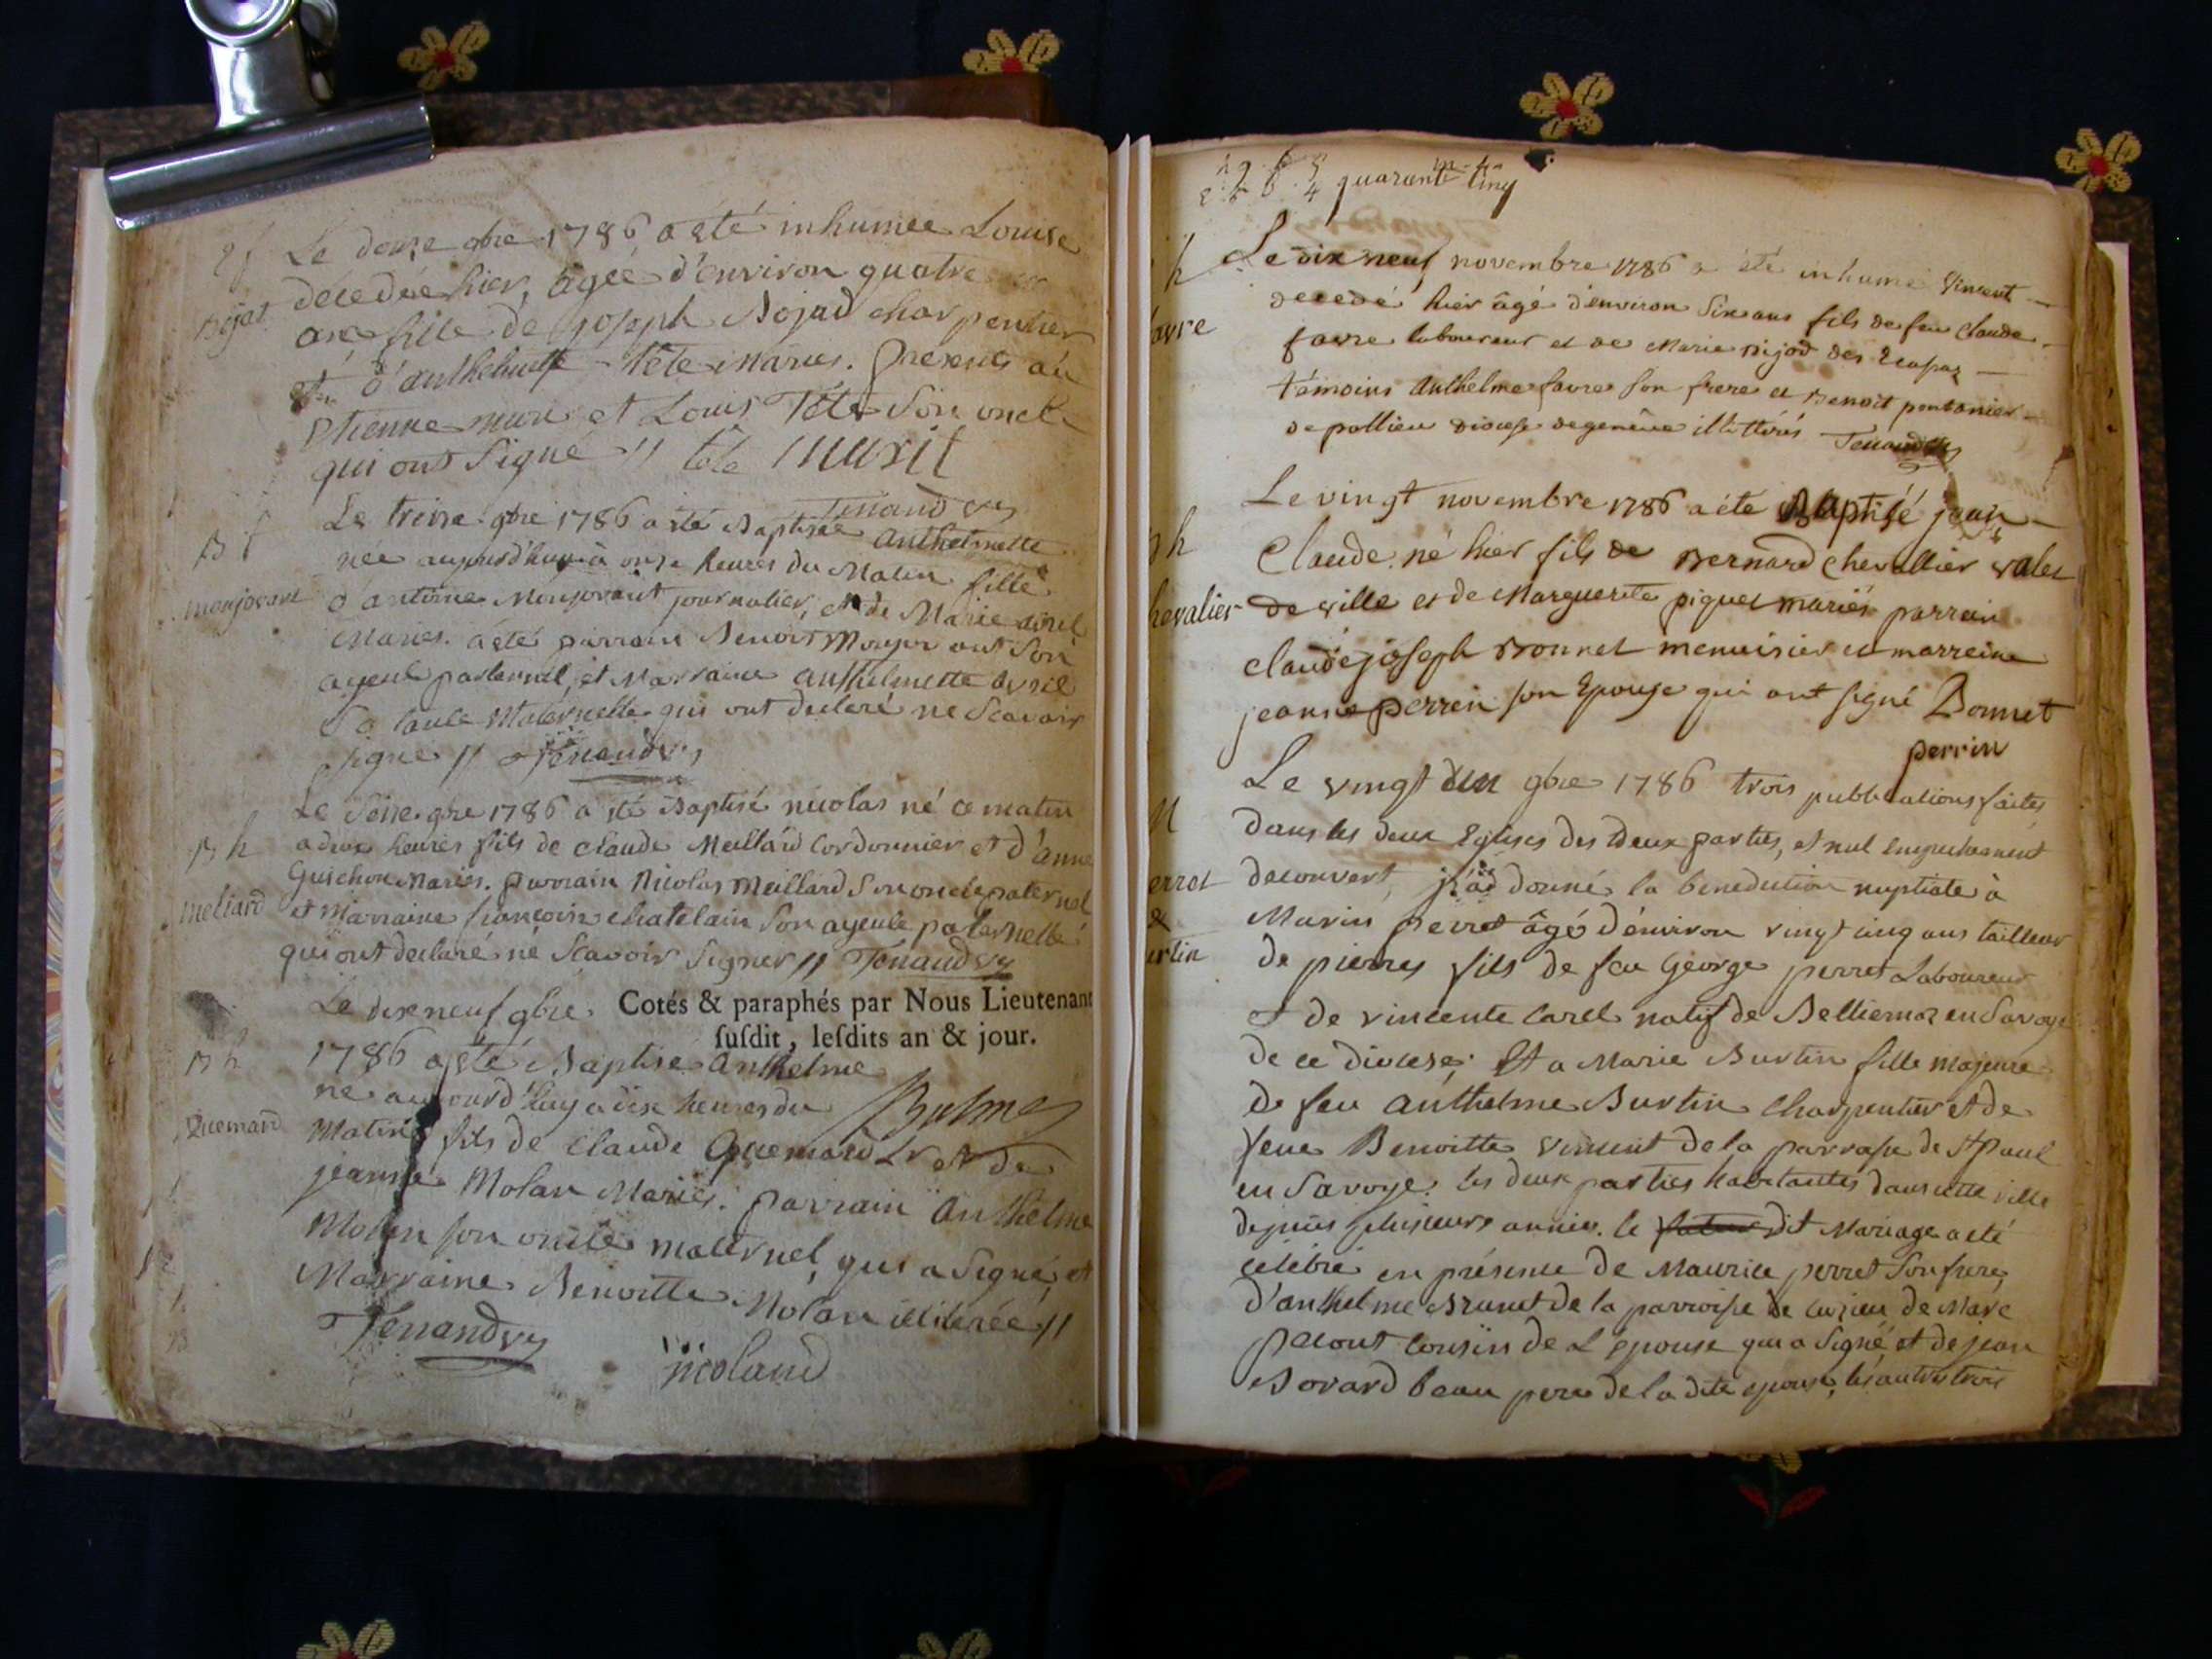 Le douze gbre 1786 a été inhumée Louise
décédée hier, agée d'environ quatre
ans fille de joseph Bojad charpentier
Bejat
et d'anthelmette tête mariés. Presents
Etienne et Louis Tête Son oncle
qui ont Signé // tête
Tenand vy
Le treize gbre 1786 a été Baptisée Anthelmette
B f
née aujourd'huy à onze heures du Matin fille
monjovant
d'antoine Monjovant journalier, et de Marie avril
Mariés. a été parrain Benoit Monjovant Son
ayeul paternel, et Marraine anthelmette avril
Sa tante Maternelle qui ont declaré ne Scavoir
signer // Tenand vy
Le Seize gbre 1786 a été Baptisé nicolas né ce matin
B h
a deux heures fils de claude Meillard Cordonnier et d'anne
Guichon Mariés. parrain Nicolas Meillard Son oncle paternel
meliard
et Marraine françoise chatelain Son ayeule paternelle
qui ont declaré ne Scavoir Signer // Tenand vy
Le dix neuf gbre
Cotés & paraphés par Nous Lieutenant
susdit, lesdits an & jour.
B h
1786 a été Baptisé Anthelme
né aujourd'huy a dix heures du
Quemard
Matin fils de Claude Quemard Lr et de
jeanne Molan Mariés. parrain Anthelme
Molan son oncle maternel, qui a Signé, et
Marraine Benoitte Molan illiterée //
Tenand vy
moland
quarante cinq
h
Le dix neuf novembre 1786 a été inhumé Vincent
decedé hier âgé d'environ Six ans fils de feu Claude
avre
favre laboureur et de Marie bijod des Ecapaz
témoins Anthelme favre son frere et Benoit pontanier
de pollieu diocese de genêve illitterés Tenand vy
Le vingt novembre 1786 a été Baptisé jean
h
Claude né hier fils de Bernard Chevallier valet
hevalier
de ville et de Marguerite piquet mariés parrain
claude joseph Bonnet menuisier et marreine
jeanne perrin son Epouse qui ont signé Bonnet
perrin
Le vingt deux gbre 1786 trois publications faites
M
dans les deux Eglises des deux parties, et nul empechement
erret
decouvert, j'ai donné la benediction nuptiale à
&
Marin perret âgé d'environ vingt cinq ans tailleur
urtin
de pierres fils de feu George perret Laboureur
et de vincente Carel natif de Belliemaz en Savoye
de ce diocese. Et a Marie Burtin fille majeure
de feu Anthelme Burtin Charpentier et de
feue Benoitte vincent de la parroisse de St paul
en Savoye. les deux parties habitantes dans cette ville
depuis plusieurs années. le dit Mariage a été
celebré en présence de Maurice perret Son frere,
d'anthelme Brunet de la parroisse de cuzieu de Marc
pacout cousin de L'epouse qui a Signé, et de jean
Bovard beau pere de la dite epouse, les autres trois